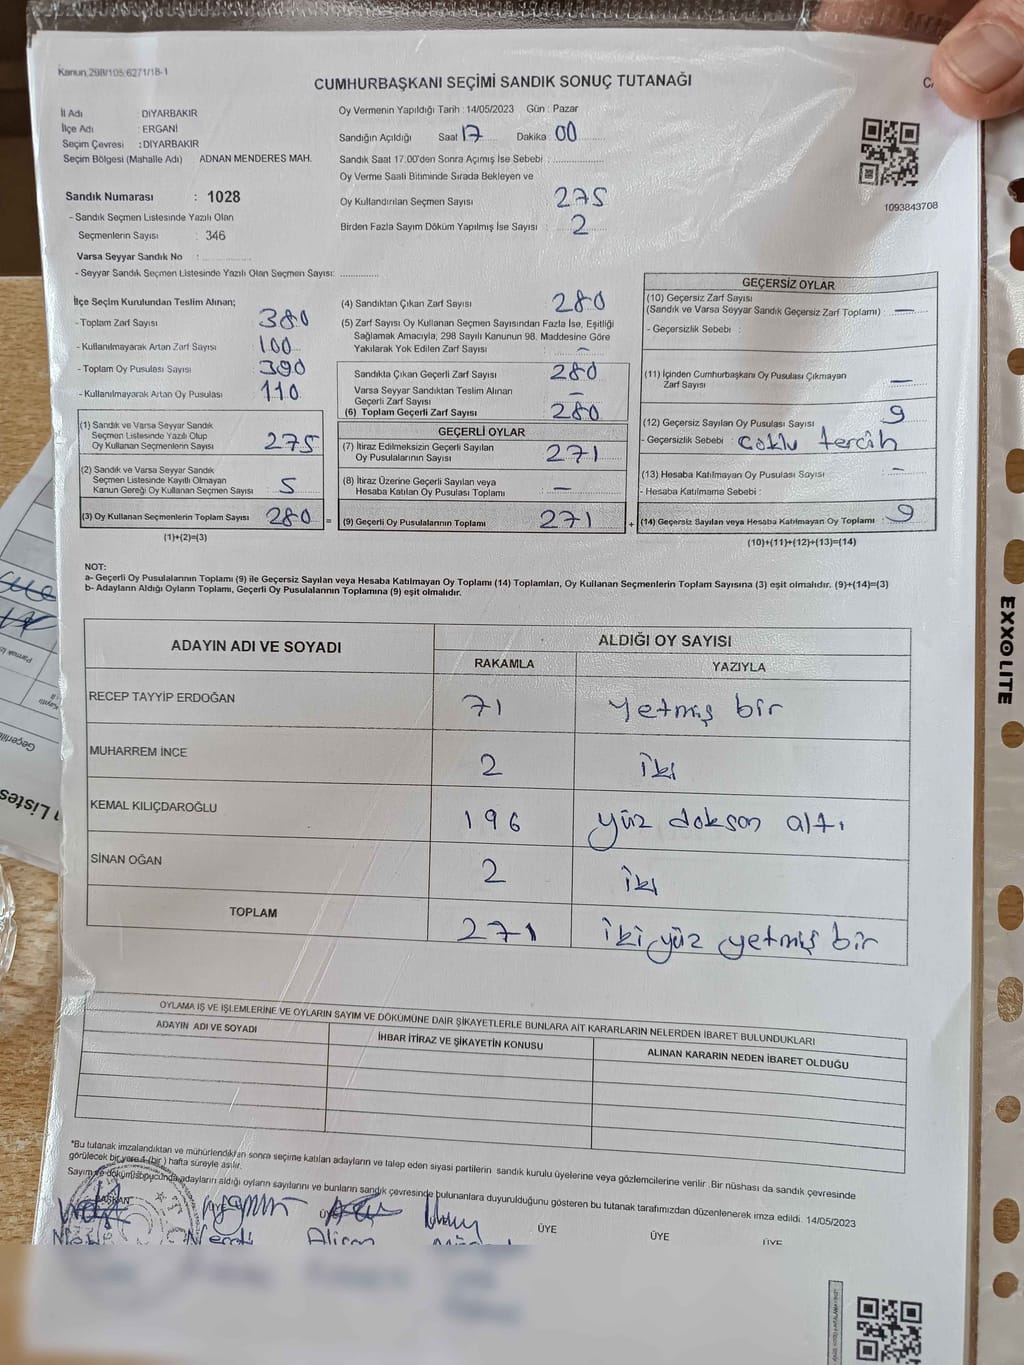 Kanun 298/105,6271/18-1
CUMHURBAŞKANI SEÇİMİ SANDIK SONUÇ TUTANAĞI
İl Adı DİYARBAKIR
İlçe Adı : ERGANİ
Seçim Çevresi : DİYARBAKIR
Seçim Bölgesi (Mahalle Adı) ADNAN MENDERES MAH.
Sandık Numarası : 1028
- Sandık Seçmen Listesinde Yazılı Olan
Seçmenlerin Sayısı : 346
Varsa Seyyar Sandık No :
- Seyyar Sandık Seçmen Listesinde Yazılı Olan Seçmen Sayısı:
Oy Vermenin Yapıldığı Tarih : 14/05/2023 Gün : Pazar
Sandığın Açıldığı Saat 17 Dakika 00
Sandık Saat 17.00'den Sonra Açımış İse Sebebi :
Oy Verme Saati Bitiminde Sırada Bekleyen ve
Oy Kullandırılan Seçmen Sayısı 275
Birden Fazla Sayım Döküm Yapılmış İse Sayısı : 2
1093843708
İlçe Seçim Kurulundan Teslim Alınan;
- Toplam Zarf Sayısı 380
- Kullanılmayarak Artan Zarf Sayısı 100
- Toplam Oy Pusulası Sayısı 390
- Kullanılmayarak Artan Oy Pusulası 110
(1) Sandık ve Varsa Seyyar Sandık
Seçmen Listesinde Yazılı Olup
Oy Kullanan Seçmenlerin Sayısı 275
(2) Sandık ve Varsa Seyyar Sandık
Seçmen Listesinde Kayıtlı Olmayan
Kanun Gereği Oy Kullanan Seçmen Sayısı 5
(3) Oy Kullanan Seçmenlerin Toplam Sayısı 280 =
(1)+(2)=(3)
(4) Sandıktan Çıkan Zarf Sayısı 280
(5) Zarf Sayısı Oy Kullanan Seçmen Sayısından Fazla İse, Eşitliği
Sağlamak Amacıyla, 298 Sayılı Kanunun 98. Maddesine Göre
Yakılarak Yok Edilen Zarf Sayısı –
Sandıkta Çıkan Geçerli Zarf Sayısı 280
Varsa Seyyar Sandıktan Teslim Alınan
Geçerli Zarf Sayısı –
(6) Toplam Geçerli Zarf Sayısı 280
GEÇERLİ OYLAR
(7) İtiraz Edilmeksizin Geçerli Sayılan
Oy Pusulalarının Sayısı 271
(8) İtiraz Üzerine Geçerli Sayılan veya
Hesaba Katılan Oy Pusulası Toplamı –
(9) Geçerli Oy Pusulalarının Toplamı 271 +
GEÇERSİZ OYLAR
(10) Geçersiz Zarf Sayısı
(Sandık ve Varsa Seyyar Sandık Geçersiz Zarf Toplamı) : –
- Geçersizlik Sebebi :
(11) İçinden Cumhurbaşkanı Oy Pusulası Çıkmayan
Zarf Sayısı –
(12) Geçersiz Sayılan Oy Pusulası Sayısı 9
- Geçersizlik Sebebi : Çoklu tercih
(13) Hesaba Katılmayan Oy Pusulası Sayısı –
- Hesaba Katılmama Sebebi :
(14) Geçersiz Sayılan veya Hesaba Katılmayan Oy Toplamı : 9
(10)+(11)+(12)+(13)=(14)
NOT:
a- Geçerli Oy Pusulalarının Toplamı (9) ile Geçersiz Sayılan veya Hesaba Katılmayan Oy Toplamı (14) Toplamları, Oy Kullanan Seçmenlerin Toplam Sayısına (3) eşit olmalıdır. (9)+(14)=(3)
b- Adayların Aldığı Oyların Toplamı, Geçerli Oy Pusulalarının Toplamına (9) eşit olmalıdır.
ADAYIN ADI VE SOYADI ALDIĞI OY SAYISI
RAKAMLA YAZIYLA
RECEP TAYYİP ERDOĞAN 71 yetmiş bir
MUHARREM İNCE 2 iki
KEMAL KILIÇDAROĞLU 196 yüz doksan altı
SİNAN OĞAN 2 iki
TOPLAM 271 iki yüz yetmiş bir
OYLAMA İŞ VE İŞLEMLERİNE VE OYLARIN SAYIM VE DÖKÜMÜNE DAİR ŞİKAYETLERLE BUNLARA AİT KARARLARIN NELERDEN İBARET BULUNDUKLARI
ADAYIN ADI VE SOYADI İHBAR İTİRAZ VE ŞİKAYETİN KONUSU ALINAN KARARIN NEDEN İBARET OLDUĞU
*Bu tutanak imzalandıktan ve mühürlendikten sonra seçime katılan adayların ve talep eden siyasi partilerin sandık kurulu üyelerine veya gözlemcilerine verilir. Bir nüshası da sandık çevresinde
görülecek bir yere 1 (bir) hafta süreyle asılır.
Sayım ve dökümü sonucunda adayların aldığı oyların sayılarını ve bunların sandık çevresinde bulunanlara duyurulduğunu gösteren bu tutanak tarafımızdan düzenlenerek imza edildi. 14/05/2023
BAŞKAN ÜYE ÜYE ÜYE ÜYE
EXXOLITE